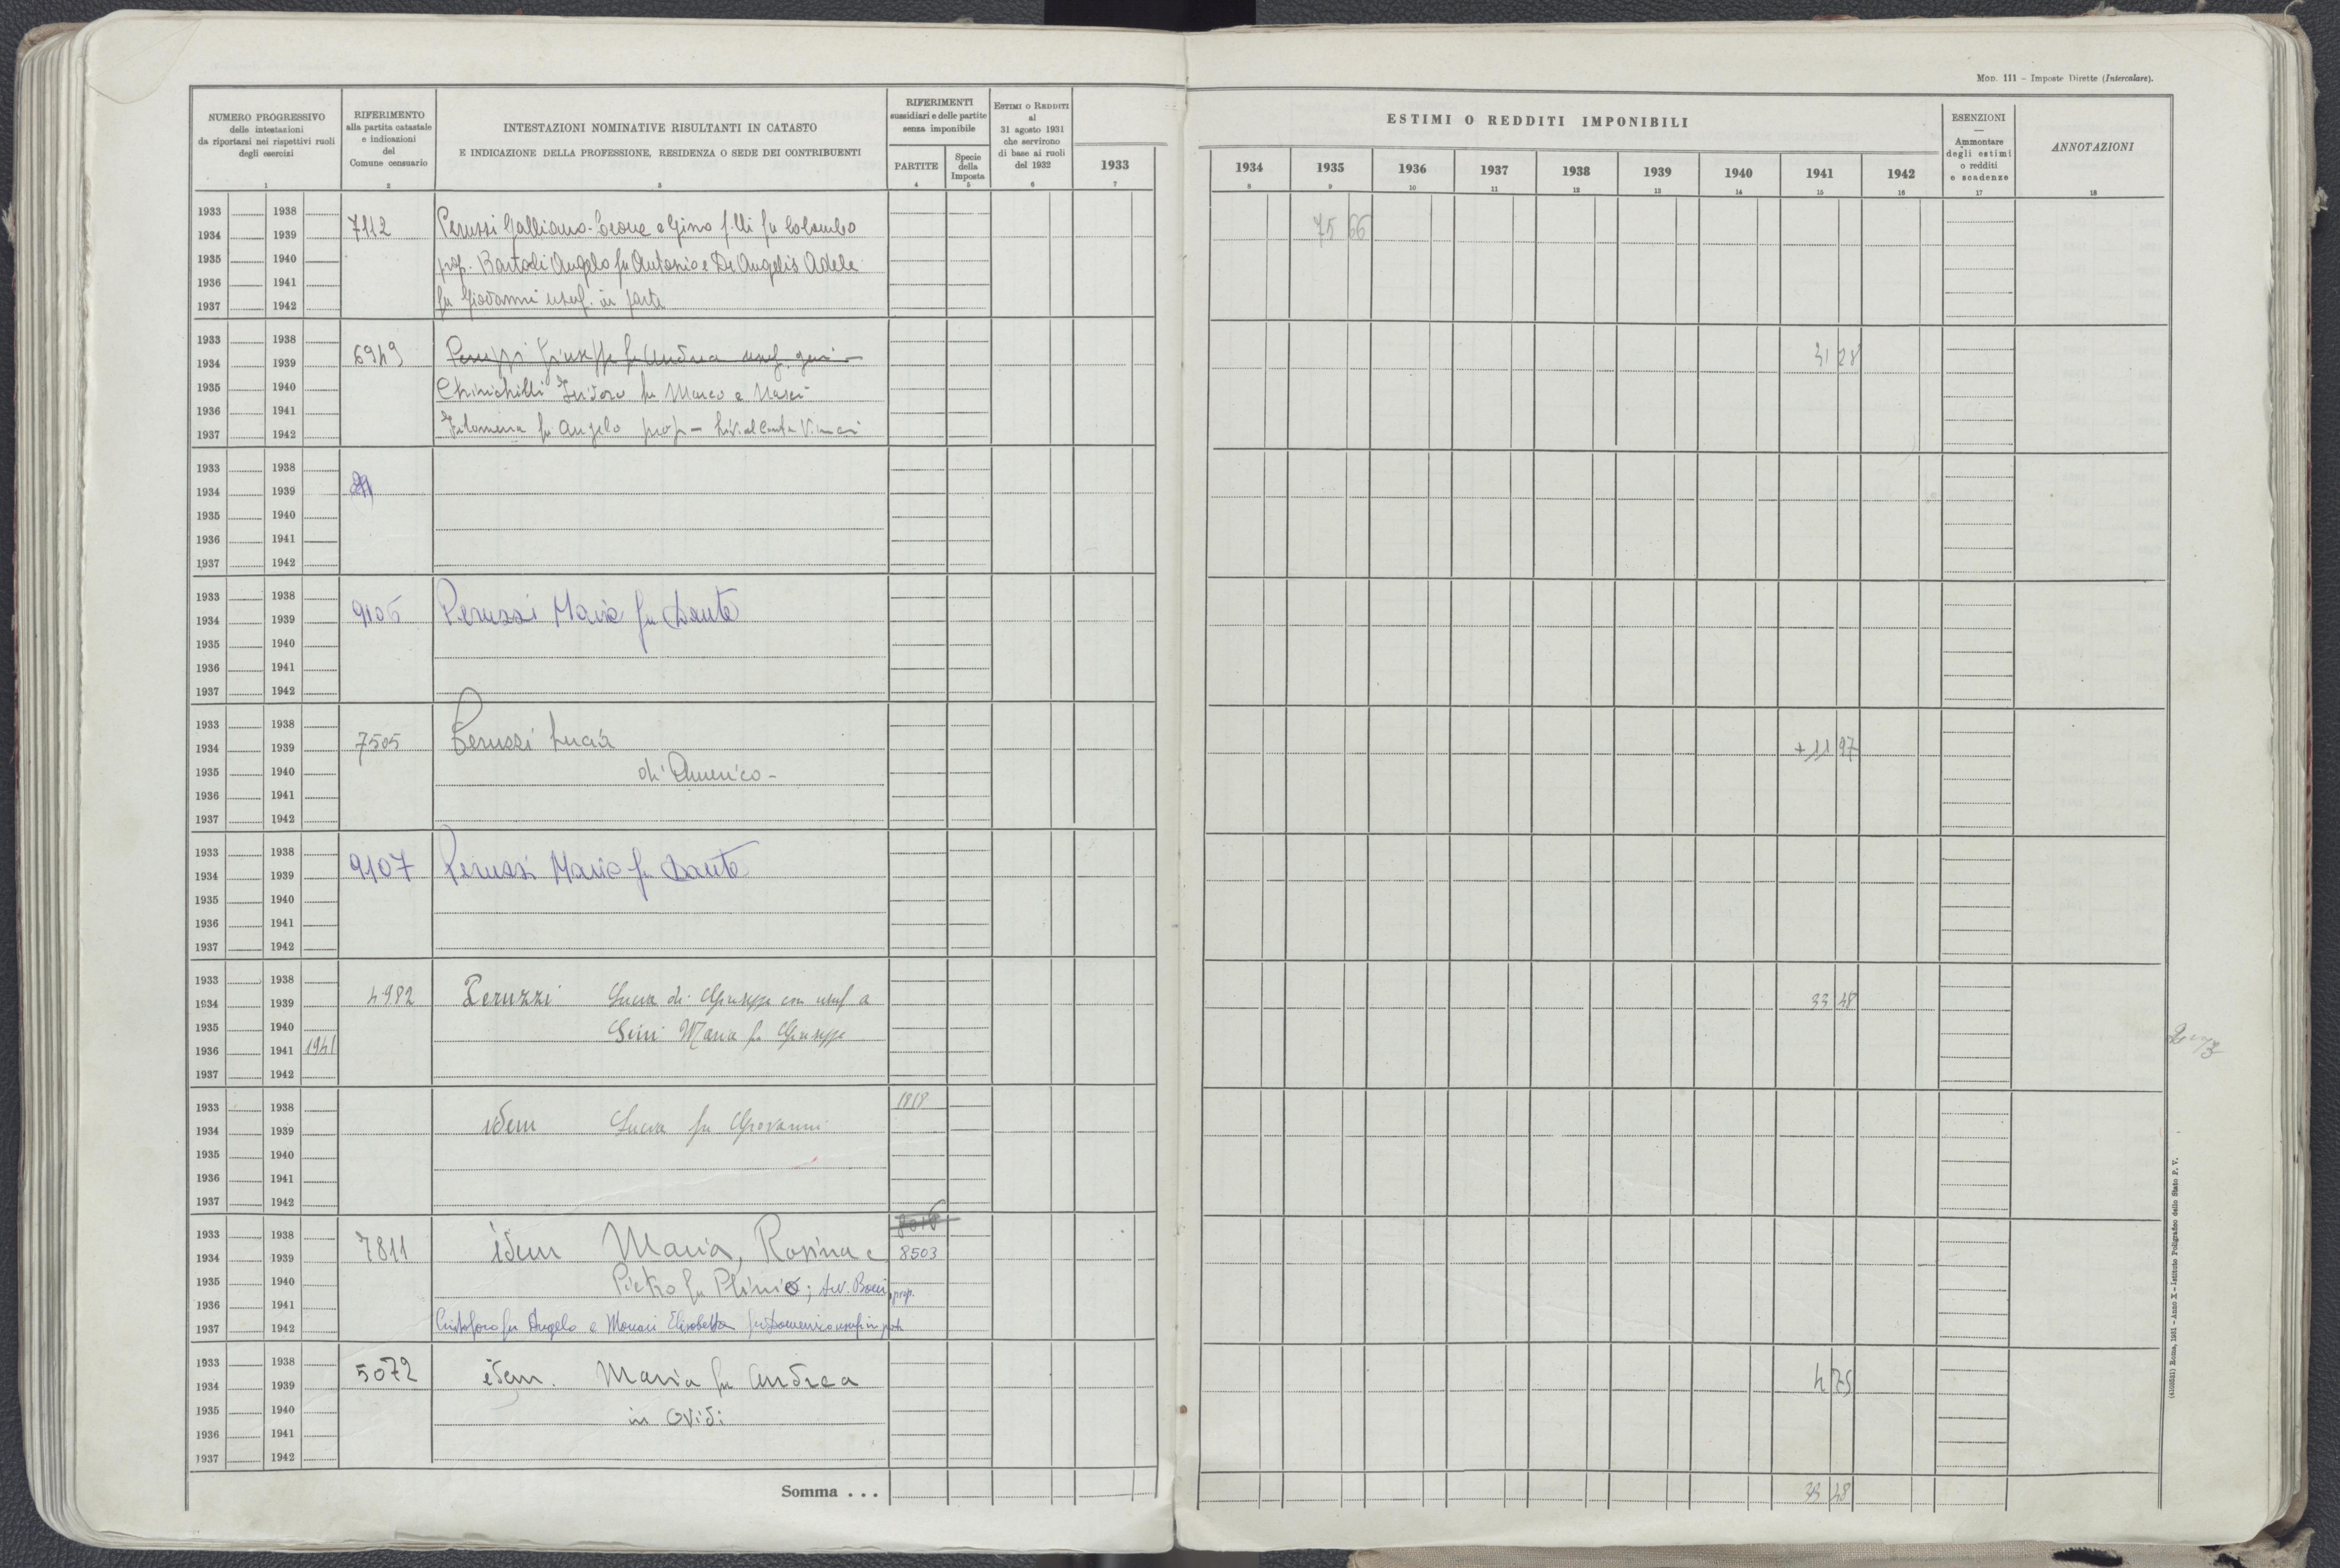 Mod. 111 - Imposte Dirette (Intercalare).
NUMERO PROGRESSIVO
delle intestazioni
da riportarsi nei rispettivi ruoli
degli esercizi
1
RIFERIMENTO
alla partita catastale
e indicazioni
del
Comune censuario
2
INTESTAZIONI NOMINATIVE RISULTANTI IN CATASTO
E INDICAZIONE DELLA PROFESSIONE, RESIDENZA O SEDE DEI CONTRIBUENTI
3
RIFERIMENTI
sussidiari e delle partite
senza imponibile
PARTITE
4
Specie
della
Imposta
5
ESTIMI O REDDITI
al
31 agosto 1931
che servirono
di base ai ruoli
del 1932
6
1933
7
ESTIMI O REDDITI IMPONIBILI
1934 1935 1936 1937 1938 1939 1940 1941 1942
8 9 10 11 12 13 14 15 16
ESENZIONI
—
Ammontare
degli estimi
o redditi
e scadenze
17
ANNOTAZIONI
18
1933 1938
1934 1939
1935 1940
1936 1941
1937 1942
7112
Peruzzi Galliano-Leone e Gino f.lli fu Colombo
prop. Bartoli Angelo fu Antonio e De Angelis Adele
fu Giovanni usuf. in parte
75 66
1933 1938
1934 1939
1935 1940
1936 1941
1937 1942
6949
Peruzzi Giuseppe fu Andrea usuf.
Chinichilli Isidoro fu Marco e
Filomena fu Angelo prop -
31 28
1933 1938
1934 1939
1935 1940
1936 1941
1937 1942
1933 1938
1934 1939
1935 1940
1936 1941
1937 1942
9106
Peruzzi Maria fu Dante
1933 1938
1934 1939
1935 1940
1936 1941
1937 1942
7505
Peruzzi Lucia
di Americo -
+ 11 97
1933 1938
1934 1939
1935 1940
1936 1941
1937 1942
9107
Peruzzi Maria fu Dante
1933 1938
1934 1939
1935 1940
1936 1941 1941
1937 1942
4982
Peruzzi Lucia di Giuseppe con usuf a
Maria fu Giuseppe
33 48
1933 1938
1934 1939
1935 1940
1936 1941
1937 1942
idem Lucia fu Giovanni
1818
1933 1938
1934 1939
1935 1940
1936 1941
1937 1942
7811
idem Maria, Rosina e
8503
Pietro fu Plinio; prop.
Cristoforo fu Angelo e Monaci Elisabetta fu Domenico usuf in parte
1933 1938
1934 1939
1935 1940
1936 1941
1937 1942
5072
idem. Maria fu Andrea
in Ovidi
4 75
Somma . . .
33 48
(4103521) Roma, 1931 - Anno X - Istituto Poligrafico dello Stato P. V.